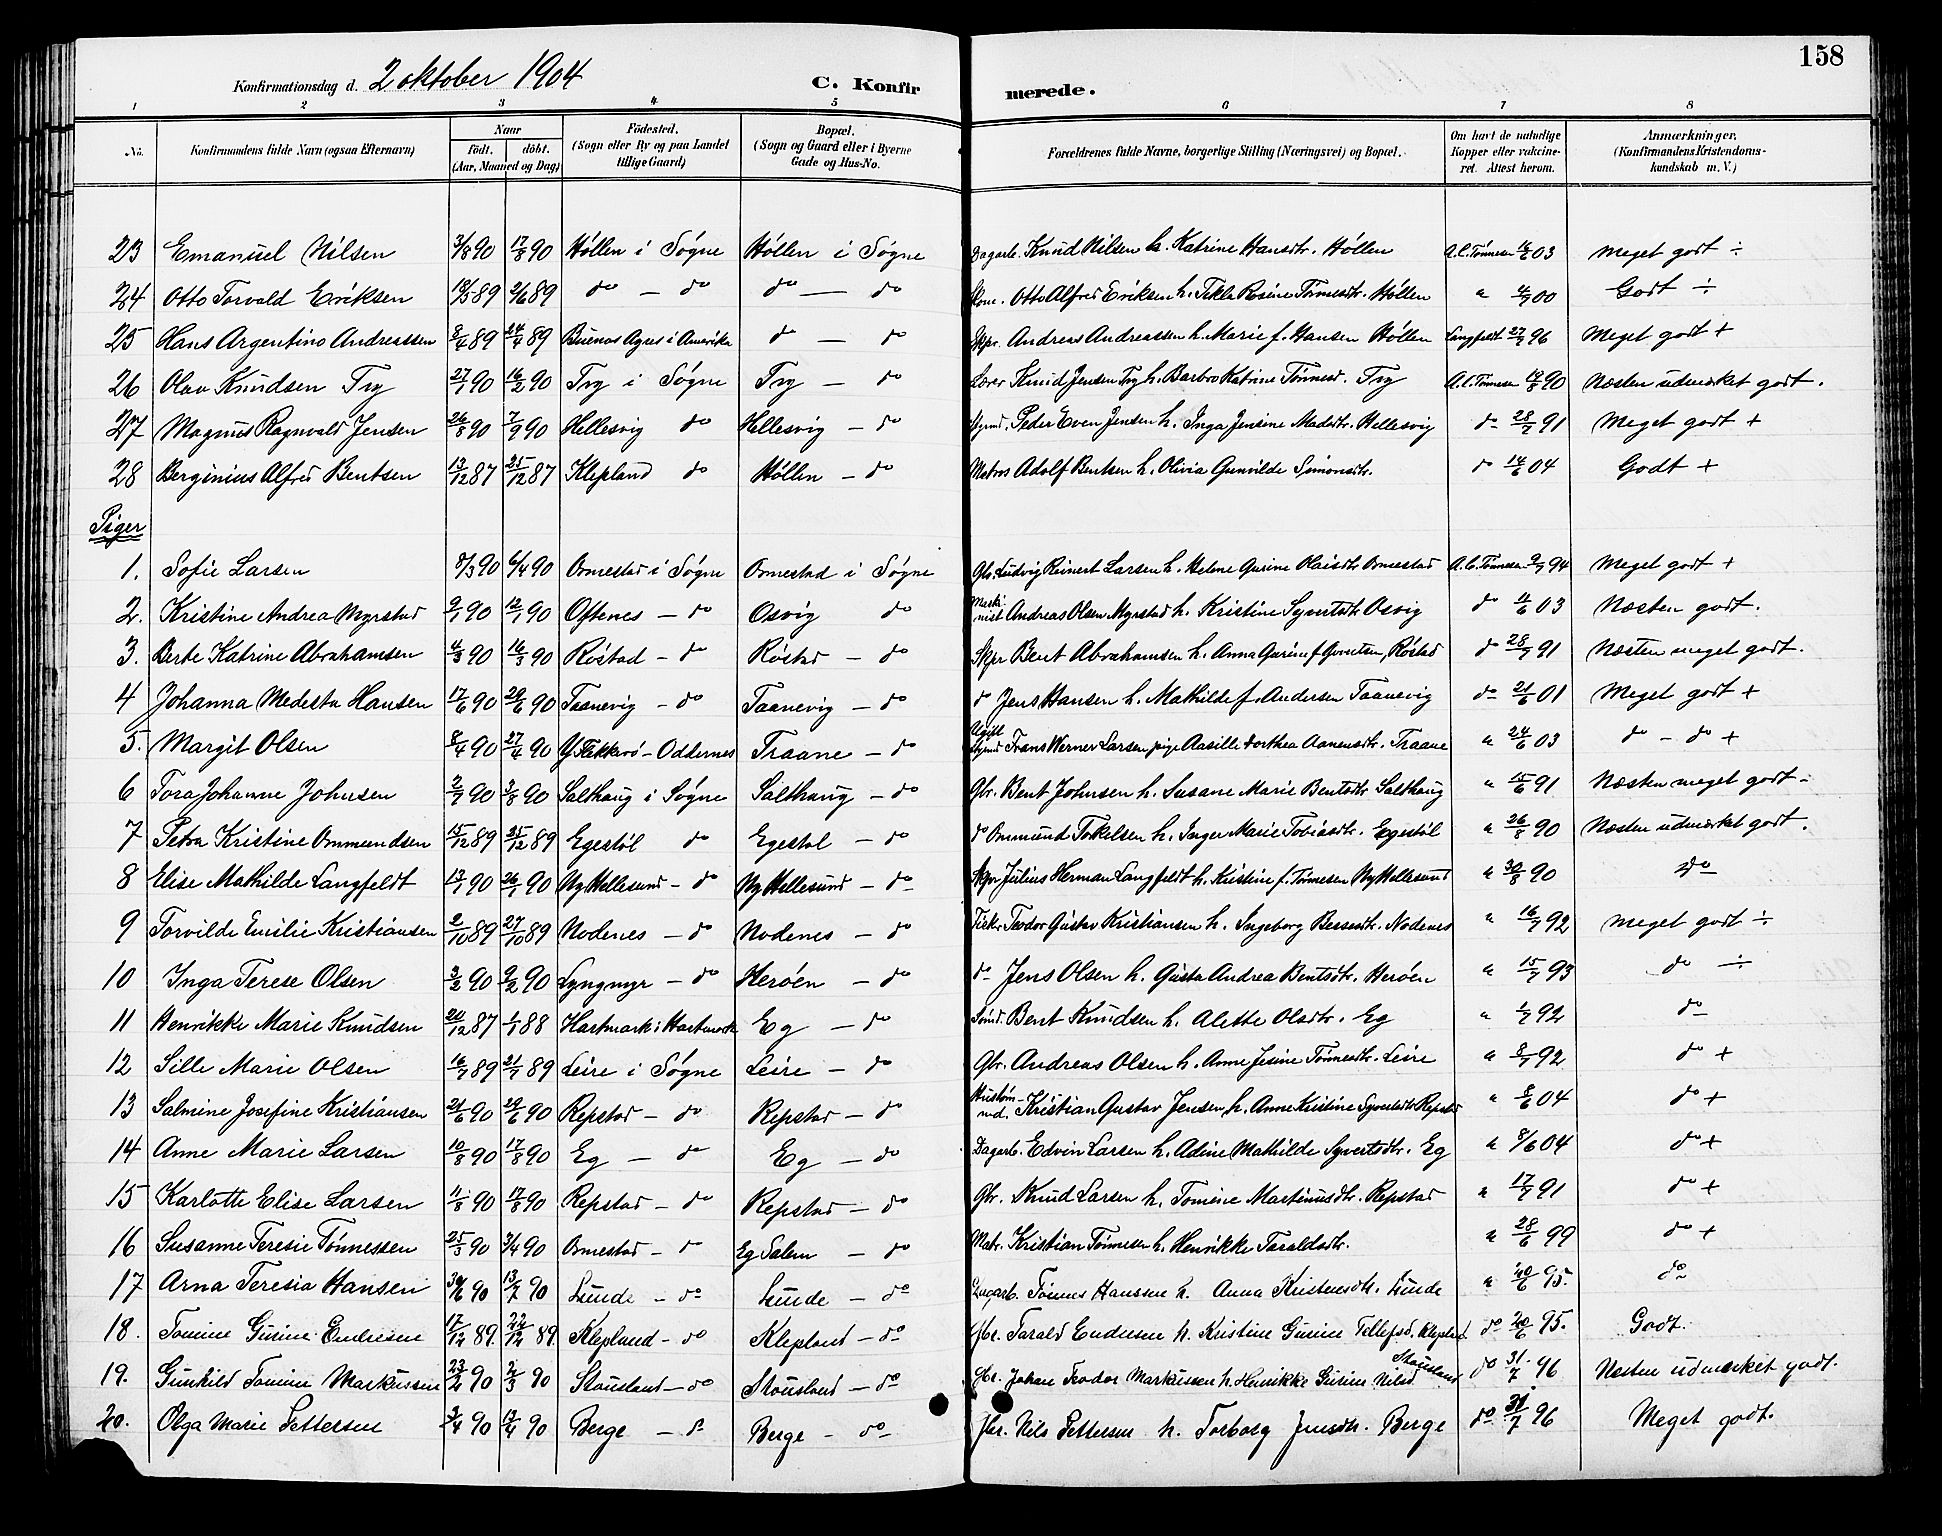 158
Konfirmationsdag d. 2 oktober 1904 C. Konfirmerede.
1 2 3 4 5 6 7 8
No. Konfirmandens fulde Navn (ogsaa Efternavn) Naar Født. døbt. (Aar, Maaned og Dag) Fødested. (Sogn eller By og paa Landet tillige Gaard) Bopæl. (Sogn og Gaard eller i Byerne Gade og Hus-No. Forældrenes fulde Navne, borgerlige Stilling (Næringsvei) og Bopæl. Om havt de naturlige Kopper eller vaccineret. Attest herom. Anmærkninger. (Konfirmandens Kristendomskundskab m. V.)
23 Emanuel Nilsen 3/8 90 17/8 90 Høllen i Søgne Høllen i Søgne Dagarb. Knud Nilsen h. Katrine Hansdtr. Høllen A.C. Tønnesen 03 Meget godt ÷
24 Otto Torvald Eriksen 18/5 89 2/6 89 do — do do — do Otto Alfred Eriksen h. Tekla Rosine Tønnesdtr. Høllen " 00 Godt ÷
25 Hans Argentino Andreassen 8/4 89 24/4 89 Buenos Ayres i Amerika do — do Skpr. Andreas Andreassen h. Marie f. Hansen Høllen Langfeldt 96 Meget godt +
26 Olav Knudsen Try 27/1 90 16/2 90 Try i Søgne Try — do Lærer Knud Jensen Try h. Barbro Katrine Tønnesd. Try A.C. Tønnesen 90 Næsten udmærket godt.
27 Magnus Ragnvald Jensen 26/8 90 7/9 90 Hellesvig do Hellesvig — do Peder Even Jensen h. Inga Jensine Madsdtr. Hellesvig do 91 Meget godt +
28 Berginius Alfred Bentsen 13/12 87 25/12 87 Klepland do Høllen — do Matros Adolf Bentsen h. Olivia Gunvilde Simonsdtr. do 14/6 04 Godt +
Piger
1. Sofie Larsen 8/3 90 6/4 90 Ormestad i Søgne Ormestad i Søgne Gbr. Ludvig Reinert Larsen h. Helene Gurine Olaisdtr Ormestad A.C. Tønnesen 94 Meget godt +
2. Kristine Andrea Myrstad 90 90 Oftenes — do Osvig do Maskinist Andreas Olsen Myrstad h. Kristine Syvertsdtr Osvig do 03 Næsten godt.
3. Berte Katrine Abrahamsen 4/3 90 16/3 90 Røstad — do Røstad — do Skpr Bent Abrahamsen h. Anna Gurine f. Røstad do 28/7 91 Næsten meget godt.
4 Johanna Modesta Hansen 17/6 90 29/6 90 Taanevig — do Taanevig — do do Jens Hansen h. Mathilde f. Andersen Taanevig do 21/6 01 Meget godt +
5. Margit Olsen 8/4 90 27/4 90 Y. Flekkerø — Oddernes Traane — do Ugift Frans Werner Larsen, pige Aasille Dorthea Aanensdtr. Traane " 24/6 03 do — do +
6 Tora Johanne Johnsen 90 3/8 90 Salthaug i Søgne Salthaug — do Gbr. Bent Johnsen h. Susane Marie Bentsdtr Salthaug " 15/6 91 Næsten meget godt —
7 Petra Kristine Ommundsen 15/12 89 25/12 89 Egestøl do Egestøl — do do Ommund Torkelsen h. Inger Marie Tobiasdtr. Egestøl " 26/8 90 Næsten udmærket godt.
8 Elise Mathilde Langfeldt 13/1 90 26/1 90 Ny Hellesund — do Ny Hellesund — do Skpr Julius Herman Langfeldt h. Kristine f. Tønnesen Ny Hellesund " 30/8 90 do
9 Torvilde Emilie Kristiansen 2/10 89 27/10 89 Nodenes — do Nodenes — do Fisker Teodor Gustav Kristiansen h. Ingeborg Nodenes " 16/7 92 Meget godt ÷
10 Inga Terese Olsen 3/2 90 9/2 90 Lyngmyr — do Herøen — do do Jens Olsen h. Gusta Andrea Bentsdtr. Herøen " 15/7 93 do ÷
11 Henrikke Marie Knudsen 21/12 87 1/1 88 Hartmark i Hartmark Eg — do Bent Knudsen h. Alette Olsdtr. Eg " 92 do
12 Sille Marie Olsen 16/7 89 21/7 89 Leire i Søgne Leire — do Gbr. Andreas Olsen h. Anne Jesine Tønnesdtr. Leire " 8/7 92 do +
13 Salmine Josefine Kristiansen 21/6 90 29/6 90 Repstad — do Repstad — do Kristian Gustav Jensen h. Anne Kristine Syvertsdtr Repstad " 8/6 04 do +
14 Anne Marie Larsen 10/8 90 17/8 90 Eg — do Eg — do Dagarb. Edvin Larsen h. Adine Mathilde Syvertsdtr. Eg " 8/6 04 do +
15 Karlotte Elise Larsen 11/8 90 17/8 90 Repstad — do Repstad — do Gbr. Knud Larsen h. Tomine Martinusdtr. Repstad " 17/7 91 do +
16 Susanne Teresie Tønnessen 25/3 90 3/4 90 Ormestad — do Eg Salem — do Matr. Kristian Tønnesen h. Henrikke Taraldsdtr. " 28/6 99 do +
17 Arna Teresia Hansen 30/6 90 13/7 90 Lunde — do Lunde — do Tønnes Hanssen h. Anna Kristensdtr. Lunde " 20/6 95. do
18. Tomine Gurine Endresen 17/12 89. 22/12 89. Klepland — do Klepland — do Gbr. Tarald Endresen h. Kristine Gurine Tellefsd. Klepland do 20/6 95. Godt.
19. Gunhild Tomine Markussen 23/2 90 2/3 90 Stousland — do Stousland — do Gbr. Johan Teodor Markussen h. Henrikke Gurine Nilsd Stousland do 31/7 96 Næsten udmærket godt.
20. Olga Marie Pettersen 3/4 90 13/4 90 Berge — do Berge — do Gbr. Nils Pettersen h. Torborg Jensdtr. Berge do 31/7 96 Meget godt.